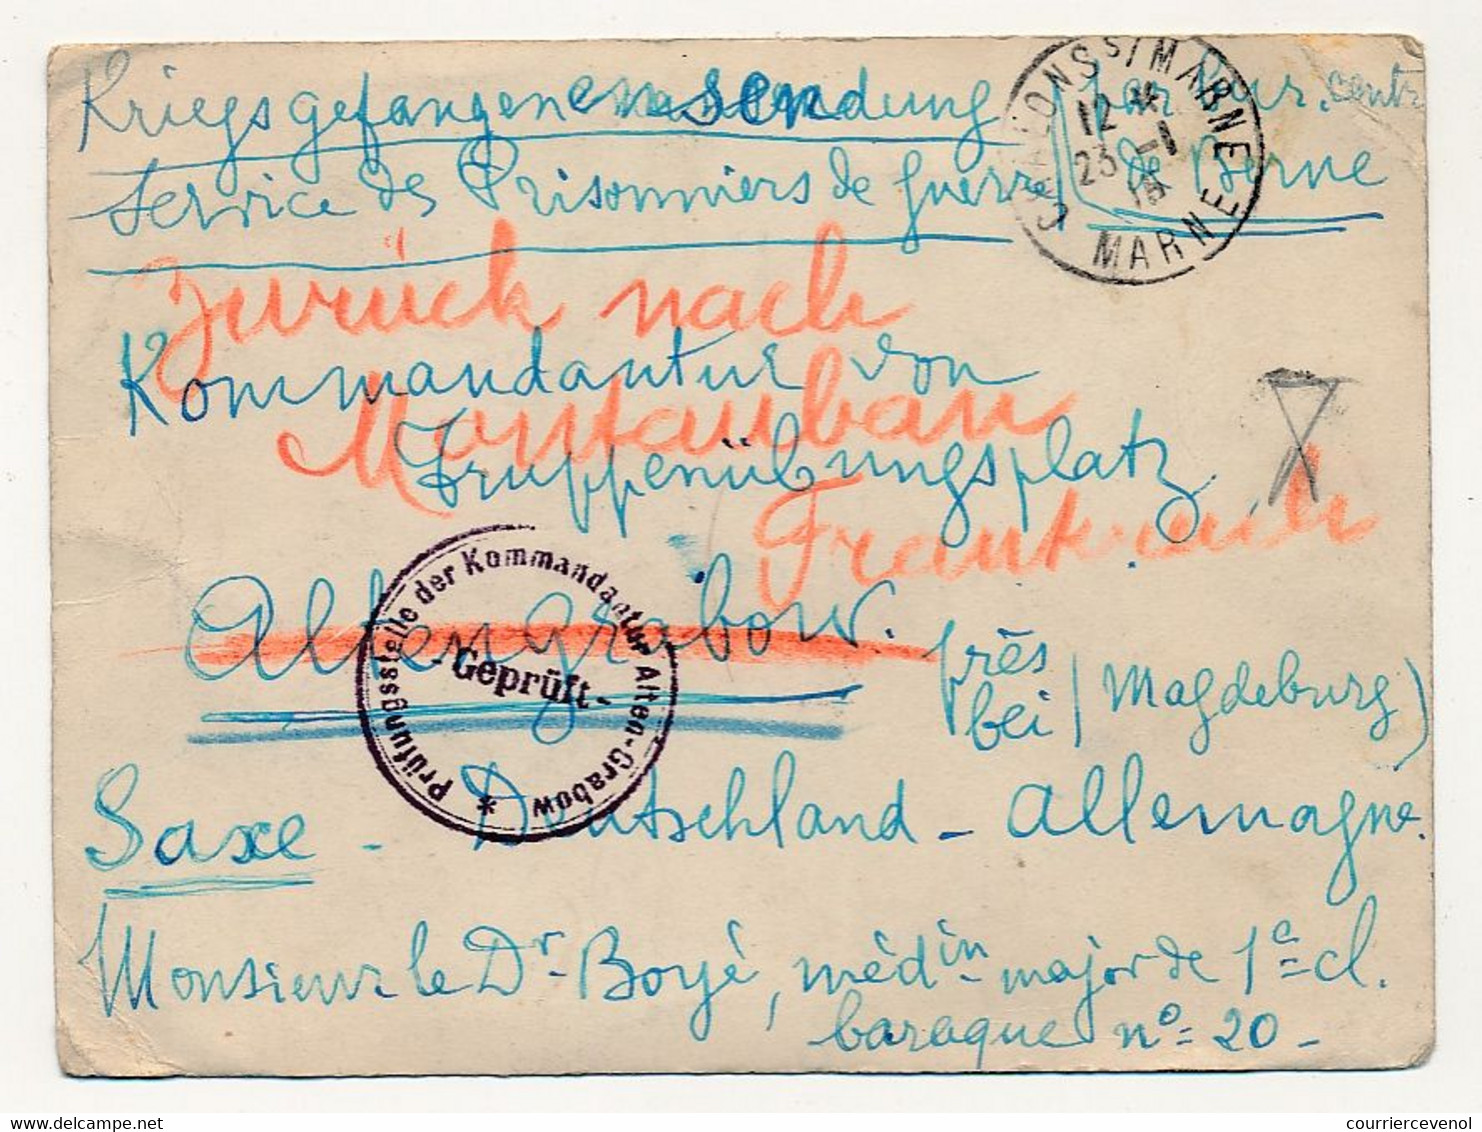 Kriegsgefangenensendung par Bur. centr
Service des Prisonniers de guerre de Berne
CHALONS S/ MARNE
12
23 -1
15
MARNE
Zurück nach
Kommandantur von
Montauban
Truppenübungsplatz
Frankreich
Altengrabow. près
bei (Magdeburg)
Prüfungsstelle der Kommandantur Alten-Grabow *
-Geprüft-
Saxe - Deutschland - Allemagne.
Monsieur le Dr Boyé, médin major de 1e cl.
baraque no 20 -
courriercevenol